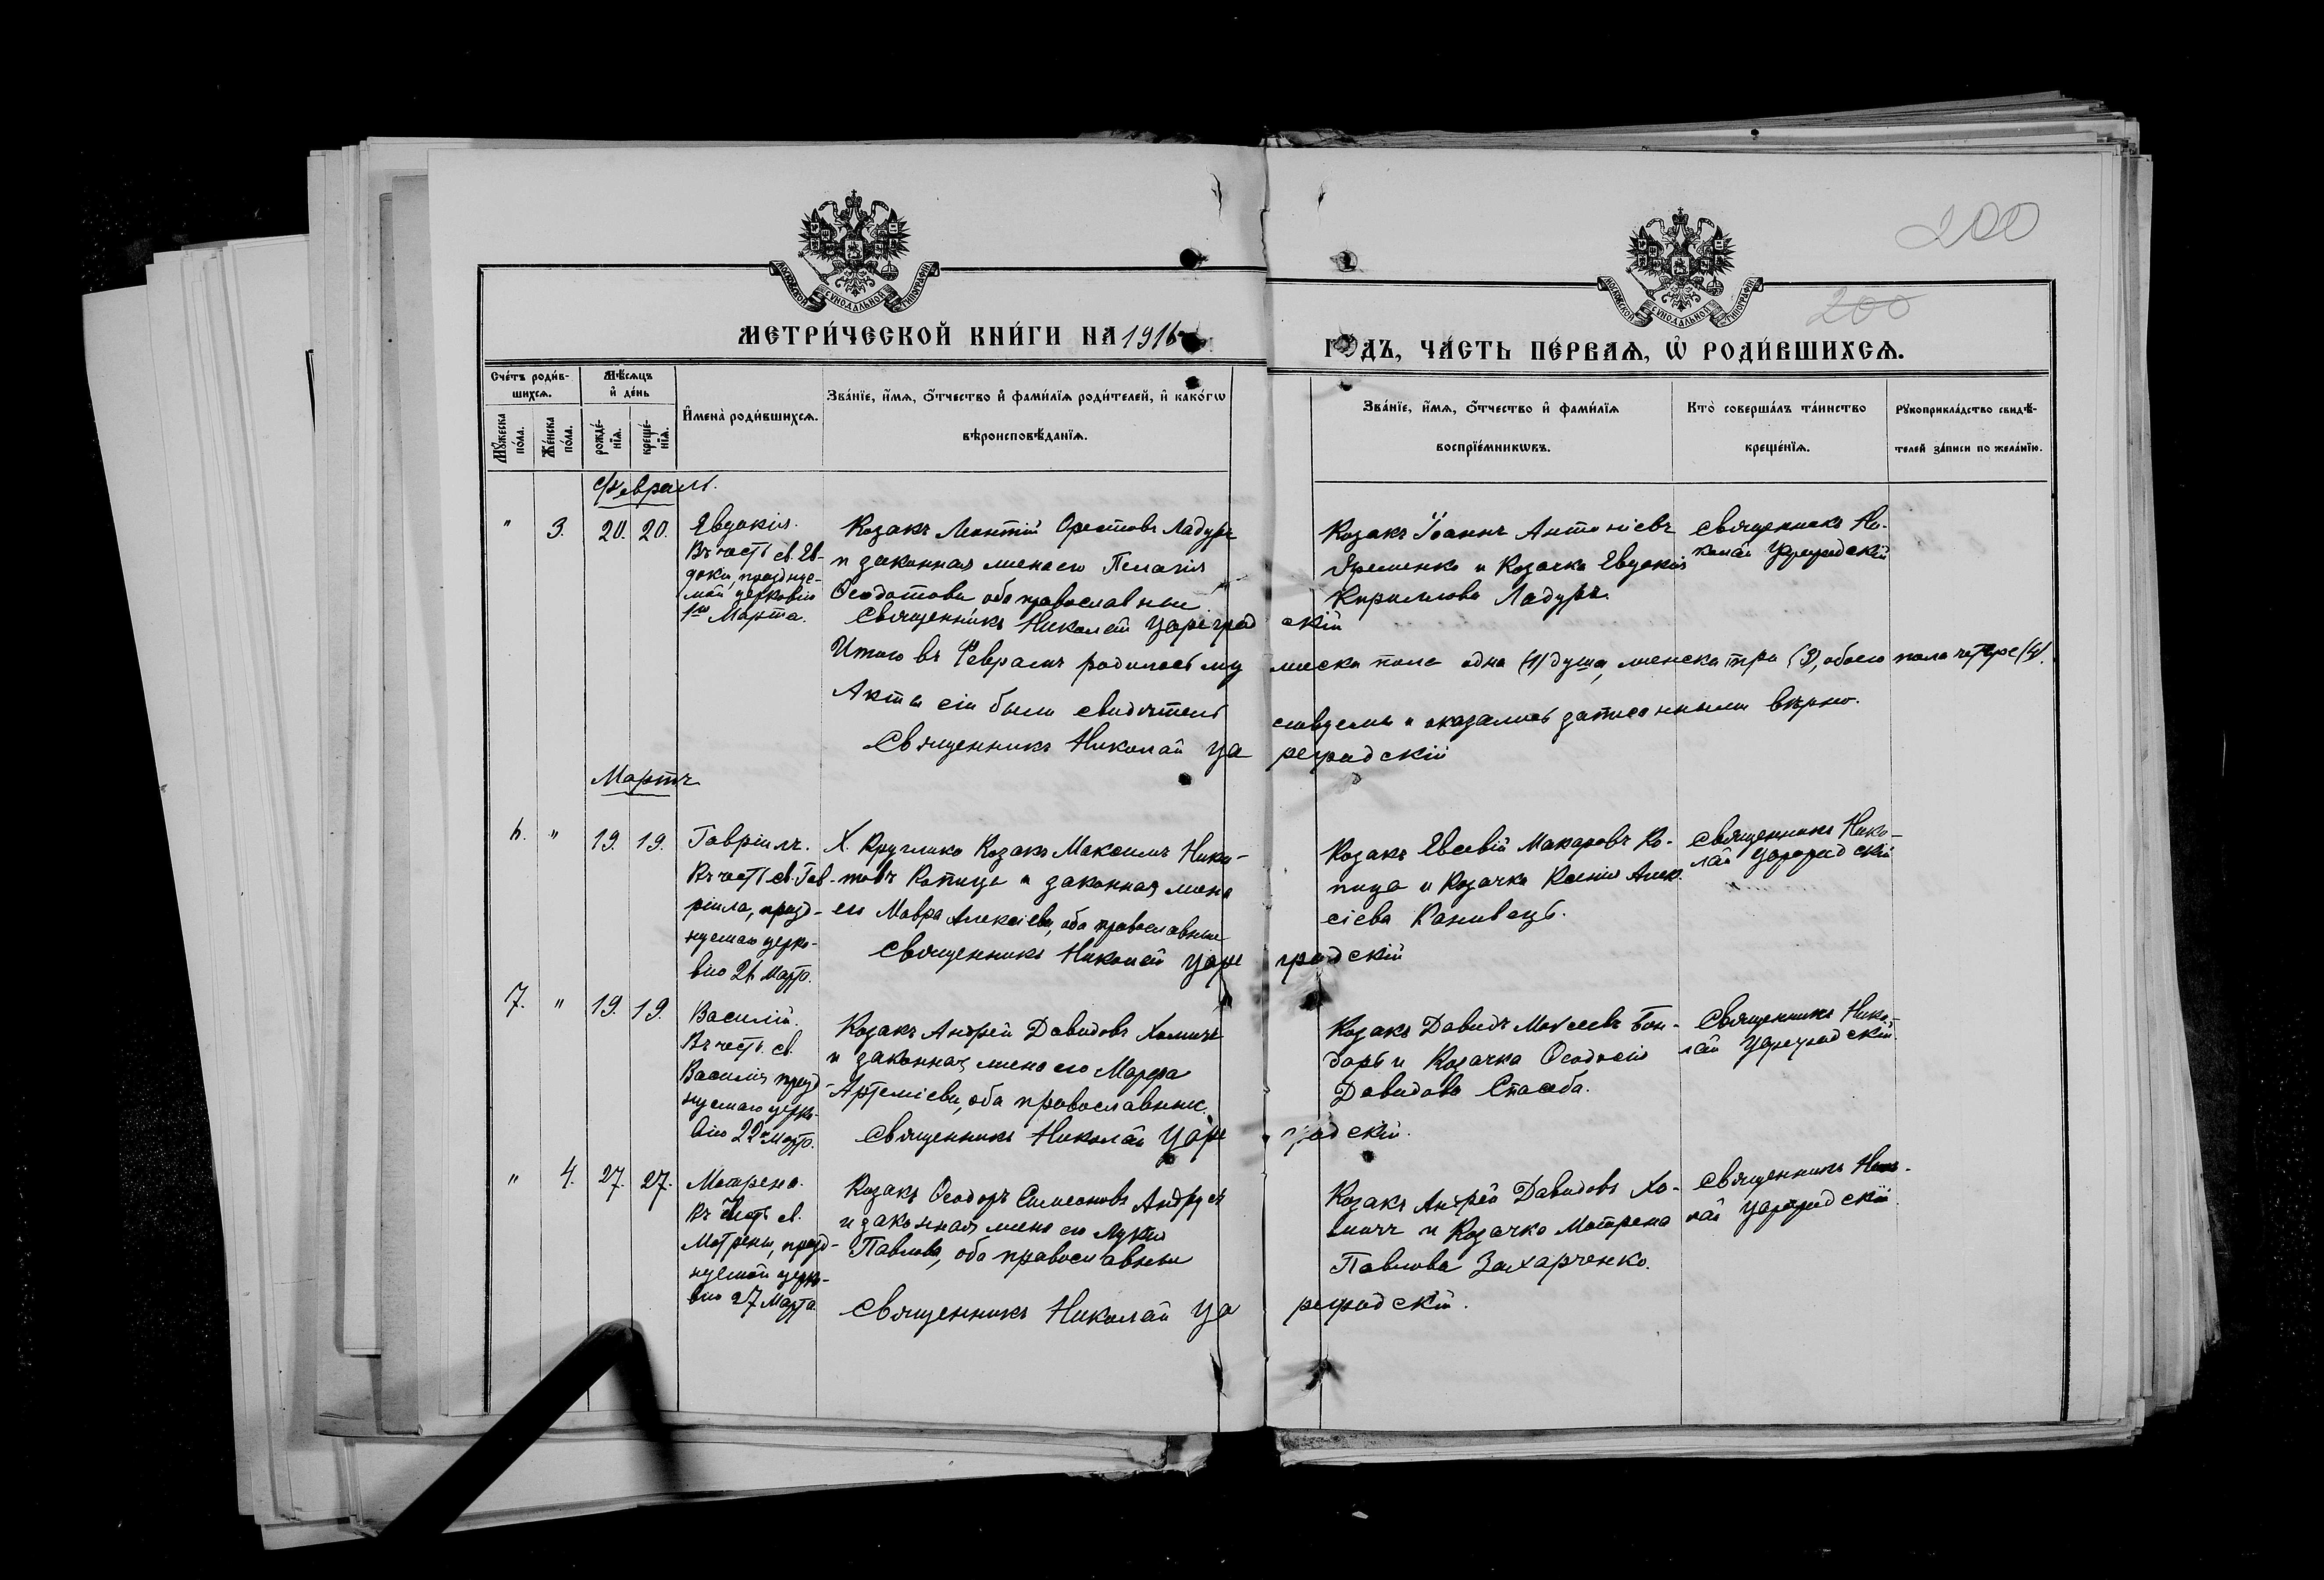 200
200
МОСКОВСКОЙ СѴНОДАЛЬНОЙ ТИПОГРАФІИ
МОСКОВСКОЙ СѴНОДАЛЬНОЙ ТИПОГРАФІИ
МЕТРИ́ЧЕСКОЙ КНИ́ГИ НА 1916
ГО́ДЪ, ЧА́СТЬ ПЕ́РВАѦ, Ѡ҆ РОДИ́ВШИХСѦ.
Сче́тъ роди́в-
шихсѧ.
Мꙋ́жеска по́ла.
Же́нска по́ла.
Мѣ́сѧцъ
и҆ де́нь
рожде́-
нїѧ.
креще́-
нїѧ.
И҆мена̀ роди́вшихсѧ.
Зва́нїе, и҆́мѧ, ѻ҆́тчество и҆ фами́лїѧ роди́телей, и҆ како́гѡ
вѣроисповѣ́данїѧ.
Зва́нїе, и҆́мѧ, ѻ҆́тчество и҆ фами́лїѧ
воспрїе́мникѡвъ.
Кто̀ соверша́лъ та́инство
креще́нїѧ.
Рꙋкоприкла́дство свидѣ́-
телей за́писи по жела́нїю.
Февраль.
" 3. 20. 20.
Евдокія.
Въ честь св. Ев-
докіи, празднуе-
мой церковію
1го Марта.
Козакъ Леонтій Орестовъ Ладуръ
и законная жена его Пелагія
Ѳеодотова оба православные
Священникъ Николай Цареградскій
Козакъ Іоаннъ Антоніевъ
Яременко и Козачка Евдокія
Кириллова Ладуръ.
Священникъ Ни-
колай Цареградскій
Итого въ Февралѣ родилось мужеска пола одна (1) душа, женска три (3), обоего пола четыре (4).
Акты сіи были свидѣтельствуемы и оказались записанными вѣрно.
Священникъ Николай Цареградскій
Мартъ
6. " 19. 19.
Гавріилъ.
Въ честь св. Гав-
ріила, празд-
нуемаго церко-
вію 26 Мар.
Х. Кругликъ Козакъ Максимъ Ники-
товъ Копица и законная жена
его Мавра Алексіева, оба православные
Священникъ Николай Цареградскій
Козакъ Евсевій Макаровъ Ко-
пица и Козачка Ксенія Алек-
сіева Канивецъ.
Священникъ Нико-
лай Цареградскій
7. " 19. 19.
Василій.
Въ честь св.
Василія празд-
нуемаго церко-
вію 22го Мар.
Козакъ Андрей Давидовъ Хомичъ
и законная жена его Марфа
Артеміева, оба православные.
Священникъ Николай Цареградскій.
Козакъ Давидъ Моѵсеевъ Бон-
дарь и Козачка Ѳеодосія
Давидова Спасиба.
Священникъ Нико-
лай Цареградскій.
" 4. 27. 27.
Матрена.
Въ честь св.
Матрены, празд-
нуемой церко-
вію 27 Марта.
Козакъ Ѳеодоръ Симеоновъ Андрусъ
и законная жена его Лукія
Павлова, оба православные
Священникъ Николай Цареградскій.
Козакъ Андрей Давидовъ Хо-
мичъ и Козачка Матрена
Павлова Захарченко.
Священникъ Нико-
лай Цареградскій.